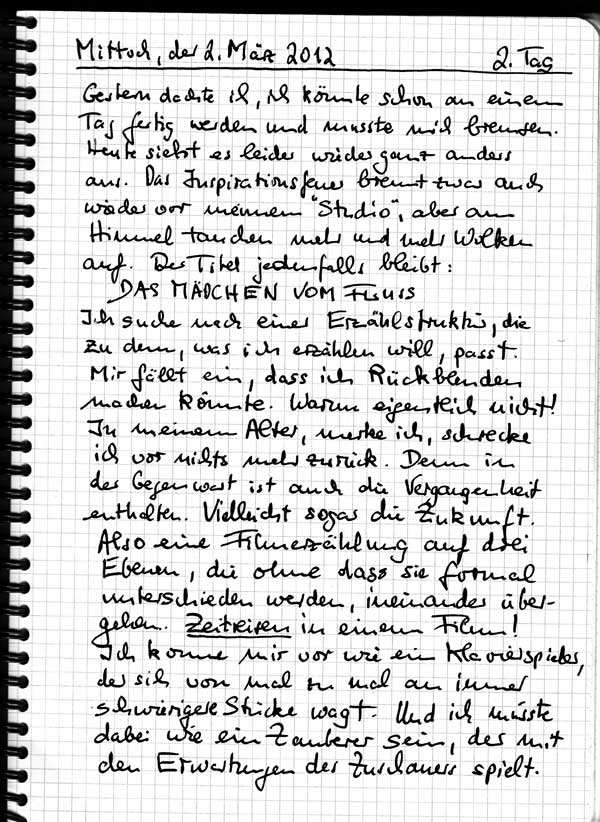 Mittwoch, der 2. März 2012 2. Tag
Gestern dachte ich, ich könnte schon an einem
Tag fertig werden und musste mich bremsen.
Heute sieht es leider wieder ganz anders
aus. Das Inspirationsfeuer brennt zwar auch
wieder vor meinem "Studio", aber am
Himmel tauchen mehr und mehr Wolken
auf. Der Titel jedenfalls bleibt:
DAS MÄDCHEN VOM FLUSS
Ich suche nach einer Erzählstruktur, die
zu dem, was ich erzählen will, passt.
Mir fällt ein, dass ich Rückblenden
machen könnte. Warum eigentlich nicht!
In meinem Alter, merke ich, schrecke
ich vor nichts mehr zurück. Denn in
der Gegenwart ist auch die Vergangenheit
enthalten. Vielleicht sogar die Zukunft.
Also eine Filmerzählung auf drei
Ebenen, die ohne dass sie formal
unterschieden werden, ineinander über-
gehen. Zeitreisen in einem Film!
Ich komme mir vor wie ein Klavierspieler,
der sich von mal zu mal an immer
schwierigere Stücke wagt. Und ich müsste
dabei wie ein Zauberer sein, der mit
den Erwartungen des Zuschauers spielt.